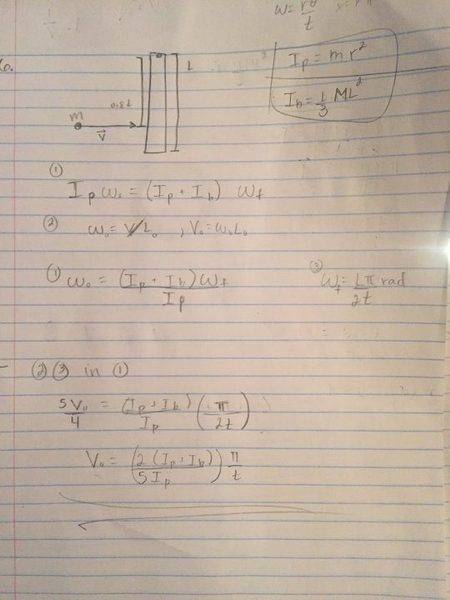 ω = rθ/t
I_p = m r²
I_b = 1/3 ML²
L
0.8L
m
v
①
I_p ω₀ = (I_p + I_b) ω_f
②
ω₀ = V/L₀ , V₀ = ω₀L₀
① ω₀ = (I_p + I_b)ω_f / I_p
③ ω_f = Lπ rad / 2t
②③ in ①
5V₀/4 = (I_p + I_b)/I_p (π/2t)
V₀ = (2(I_p + I_b)/5I_p) π/t